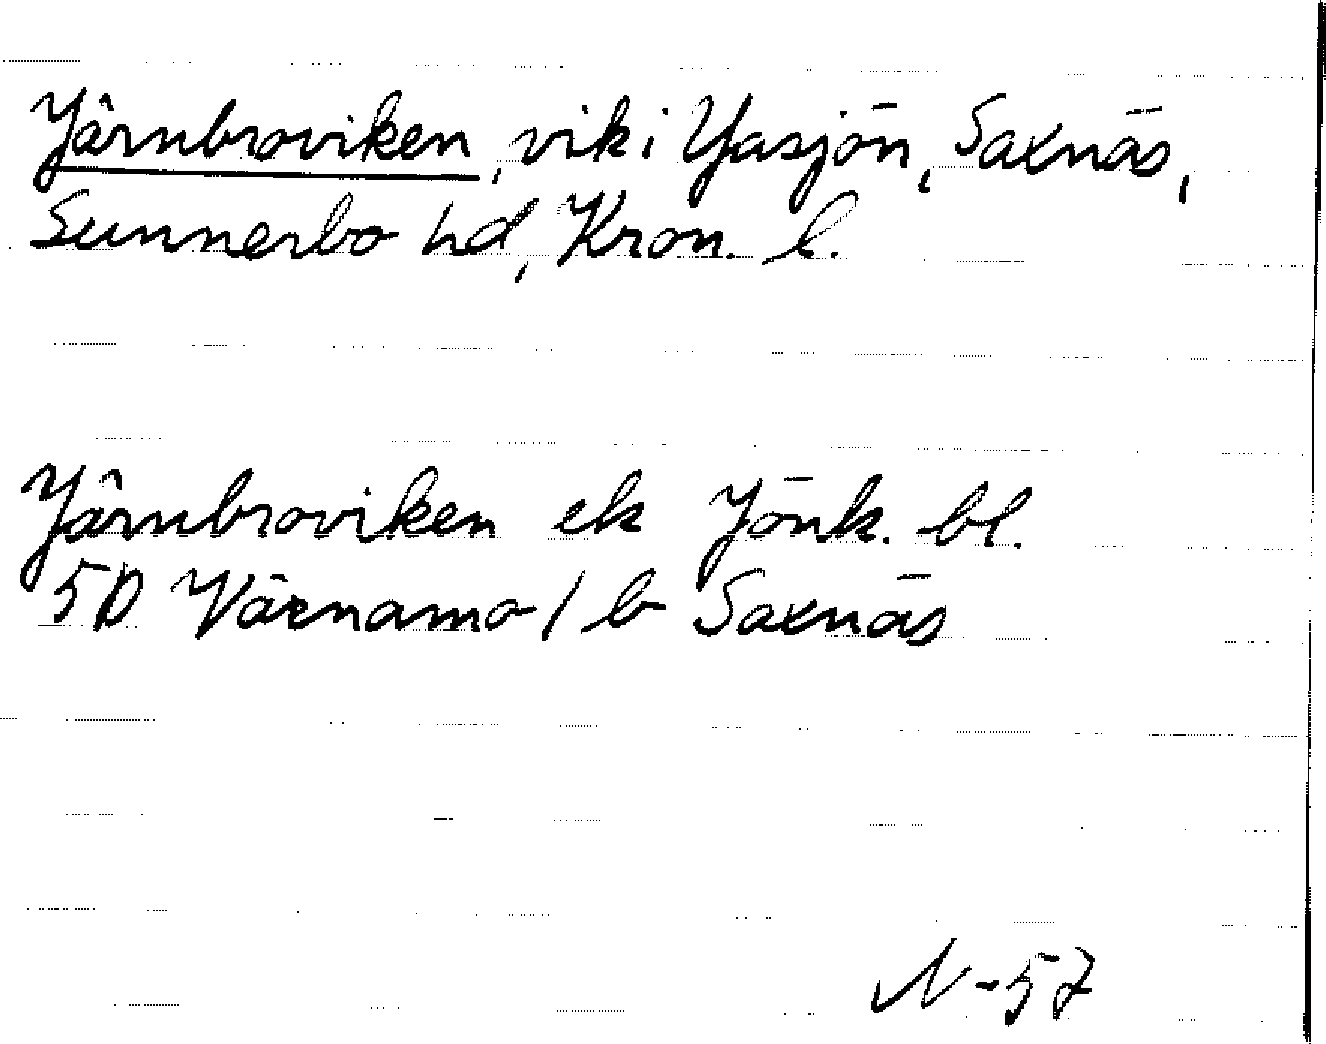 Järnbroviken, vik i Yasjön, Saxnäs,
Sunnerbo hd, Kron. l.
Järnbroviken ek Jönk. bl.
5D Värnamo / b Saxnäs
N-57